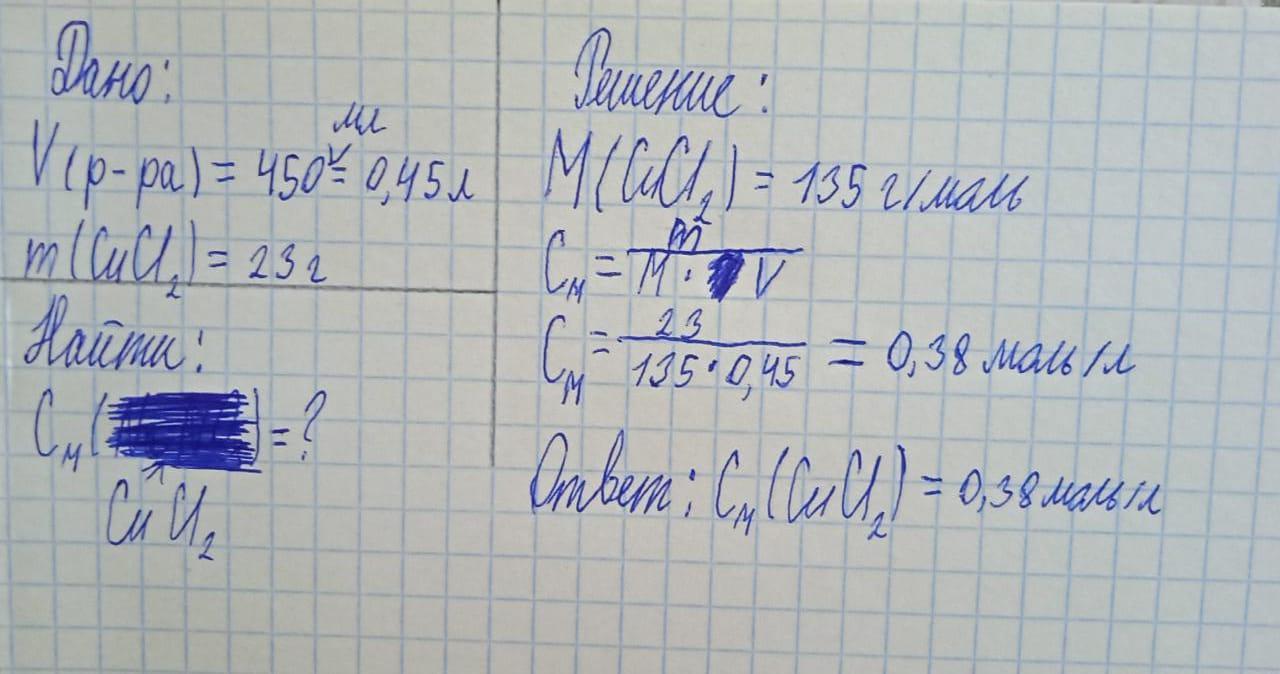 Дано:
V(р-ра) = 450 мл = 0,45 л
m(CuCl₂) = 23 г
Найти:
Cₘ(CuCl₂) = ?
Решение:
M(CuCl₂) = 135 г/моль
Cₘ = m / M · V
Cₘ = 23 / 135 · 0,45 = 0,38 моль/л
Ответ: Cₘ(CuCl₂) = 0,38 моль/л